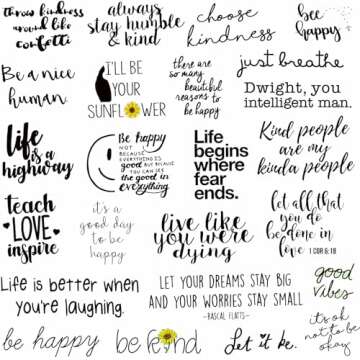 throw kindness
around like
confetti
always
stay humble
& kind
choose
kindness
bee
happy
Be a nice
human.
I'LL BE
YOUR
SUNFLOWER
there are
so many
beautiful
reasons to
be happy
just breathe
Dwight, you
intelligent man.
life
is a
highway
Be happy
NOT
BECAUSE
EVERYTHING IS
good BUT BECAUSE
YOU CAN SEE
the good in
everything
Life
begins
where
fear
ends.
Kind people
are my
kinda people
teach
LOVE
inspire
it's a
good day
to be
happy
live like
you were
dying
let all that
you do
be done in
love
1 COR 16:18
Life is better when
you're laughing.
LET YOUR DREAMS STAY BIG
AND YOUR WORRIES STAY SMALL
-RASCAL FLATTS-
good
vibes
be happy
be kind
Let it be.
it's ok
not to be
okay